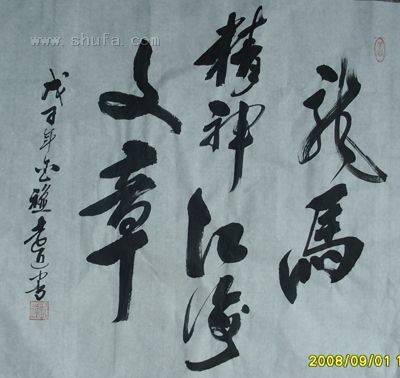 龍馬
精神江海
文章
戊子年書
www.shufa.com
2008/09/01 1